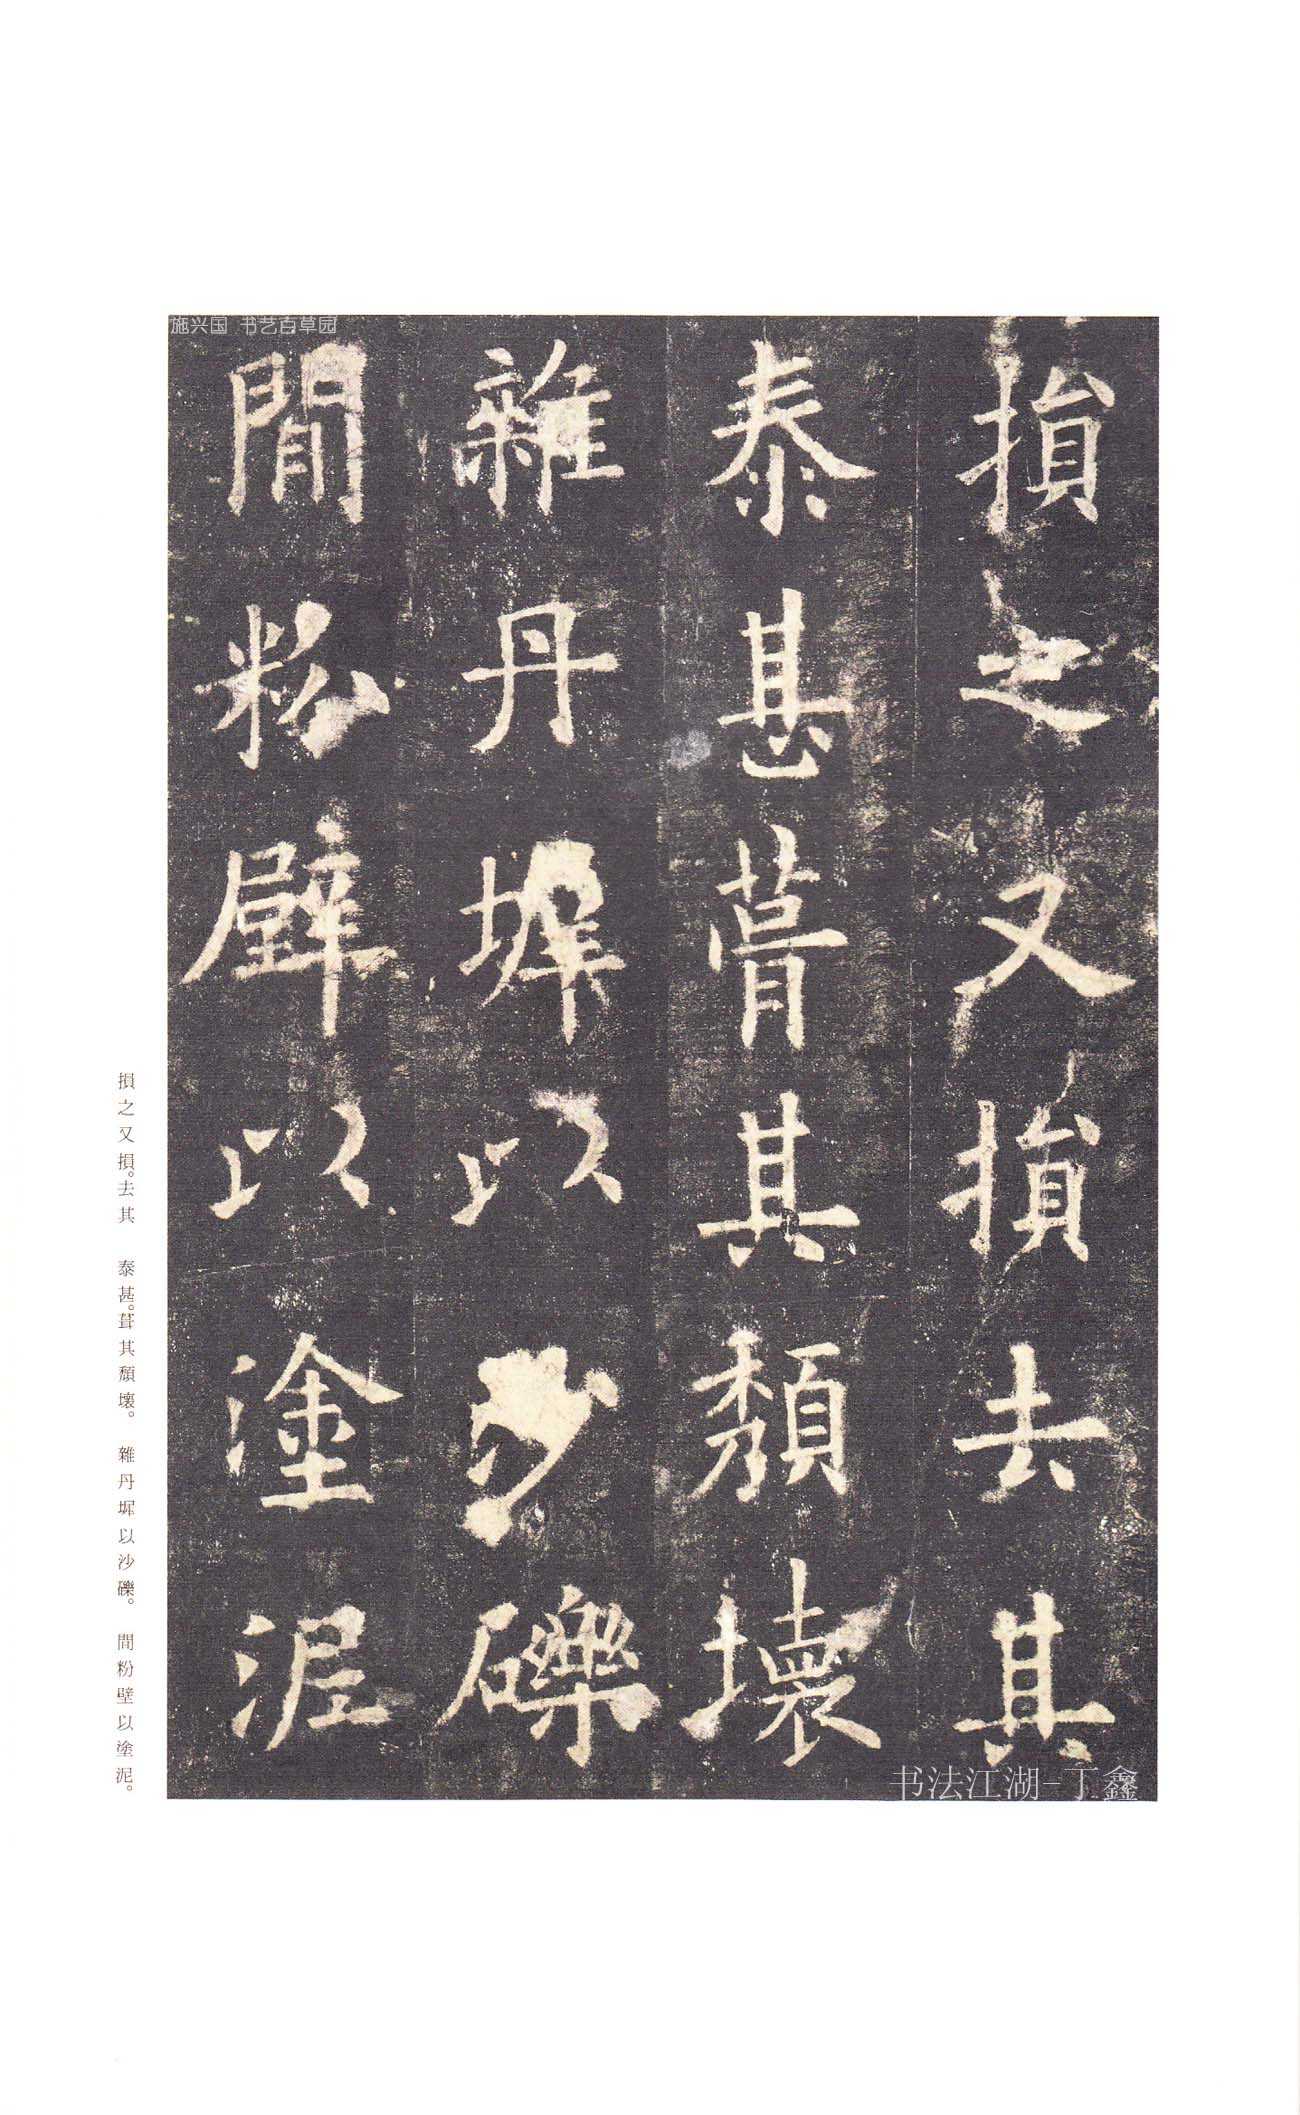 施兴国 书艺百草园
損之又損去其
泰甚葺其頹壞
雜丹墀以沙礫
間粉壁以塗泥
书法江湖-丁鑫
損之又損。去其 泰甚。葺其頹壞。 雜丹墀以沙礫。 間粉壁以塗泥。